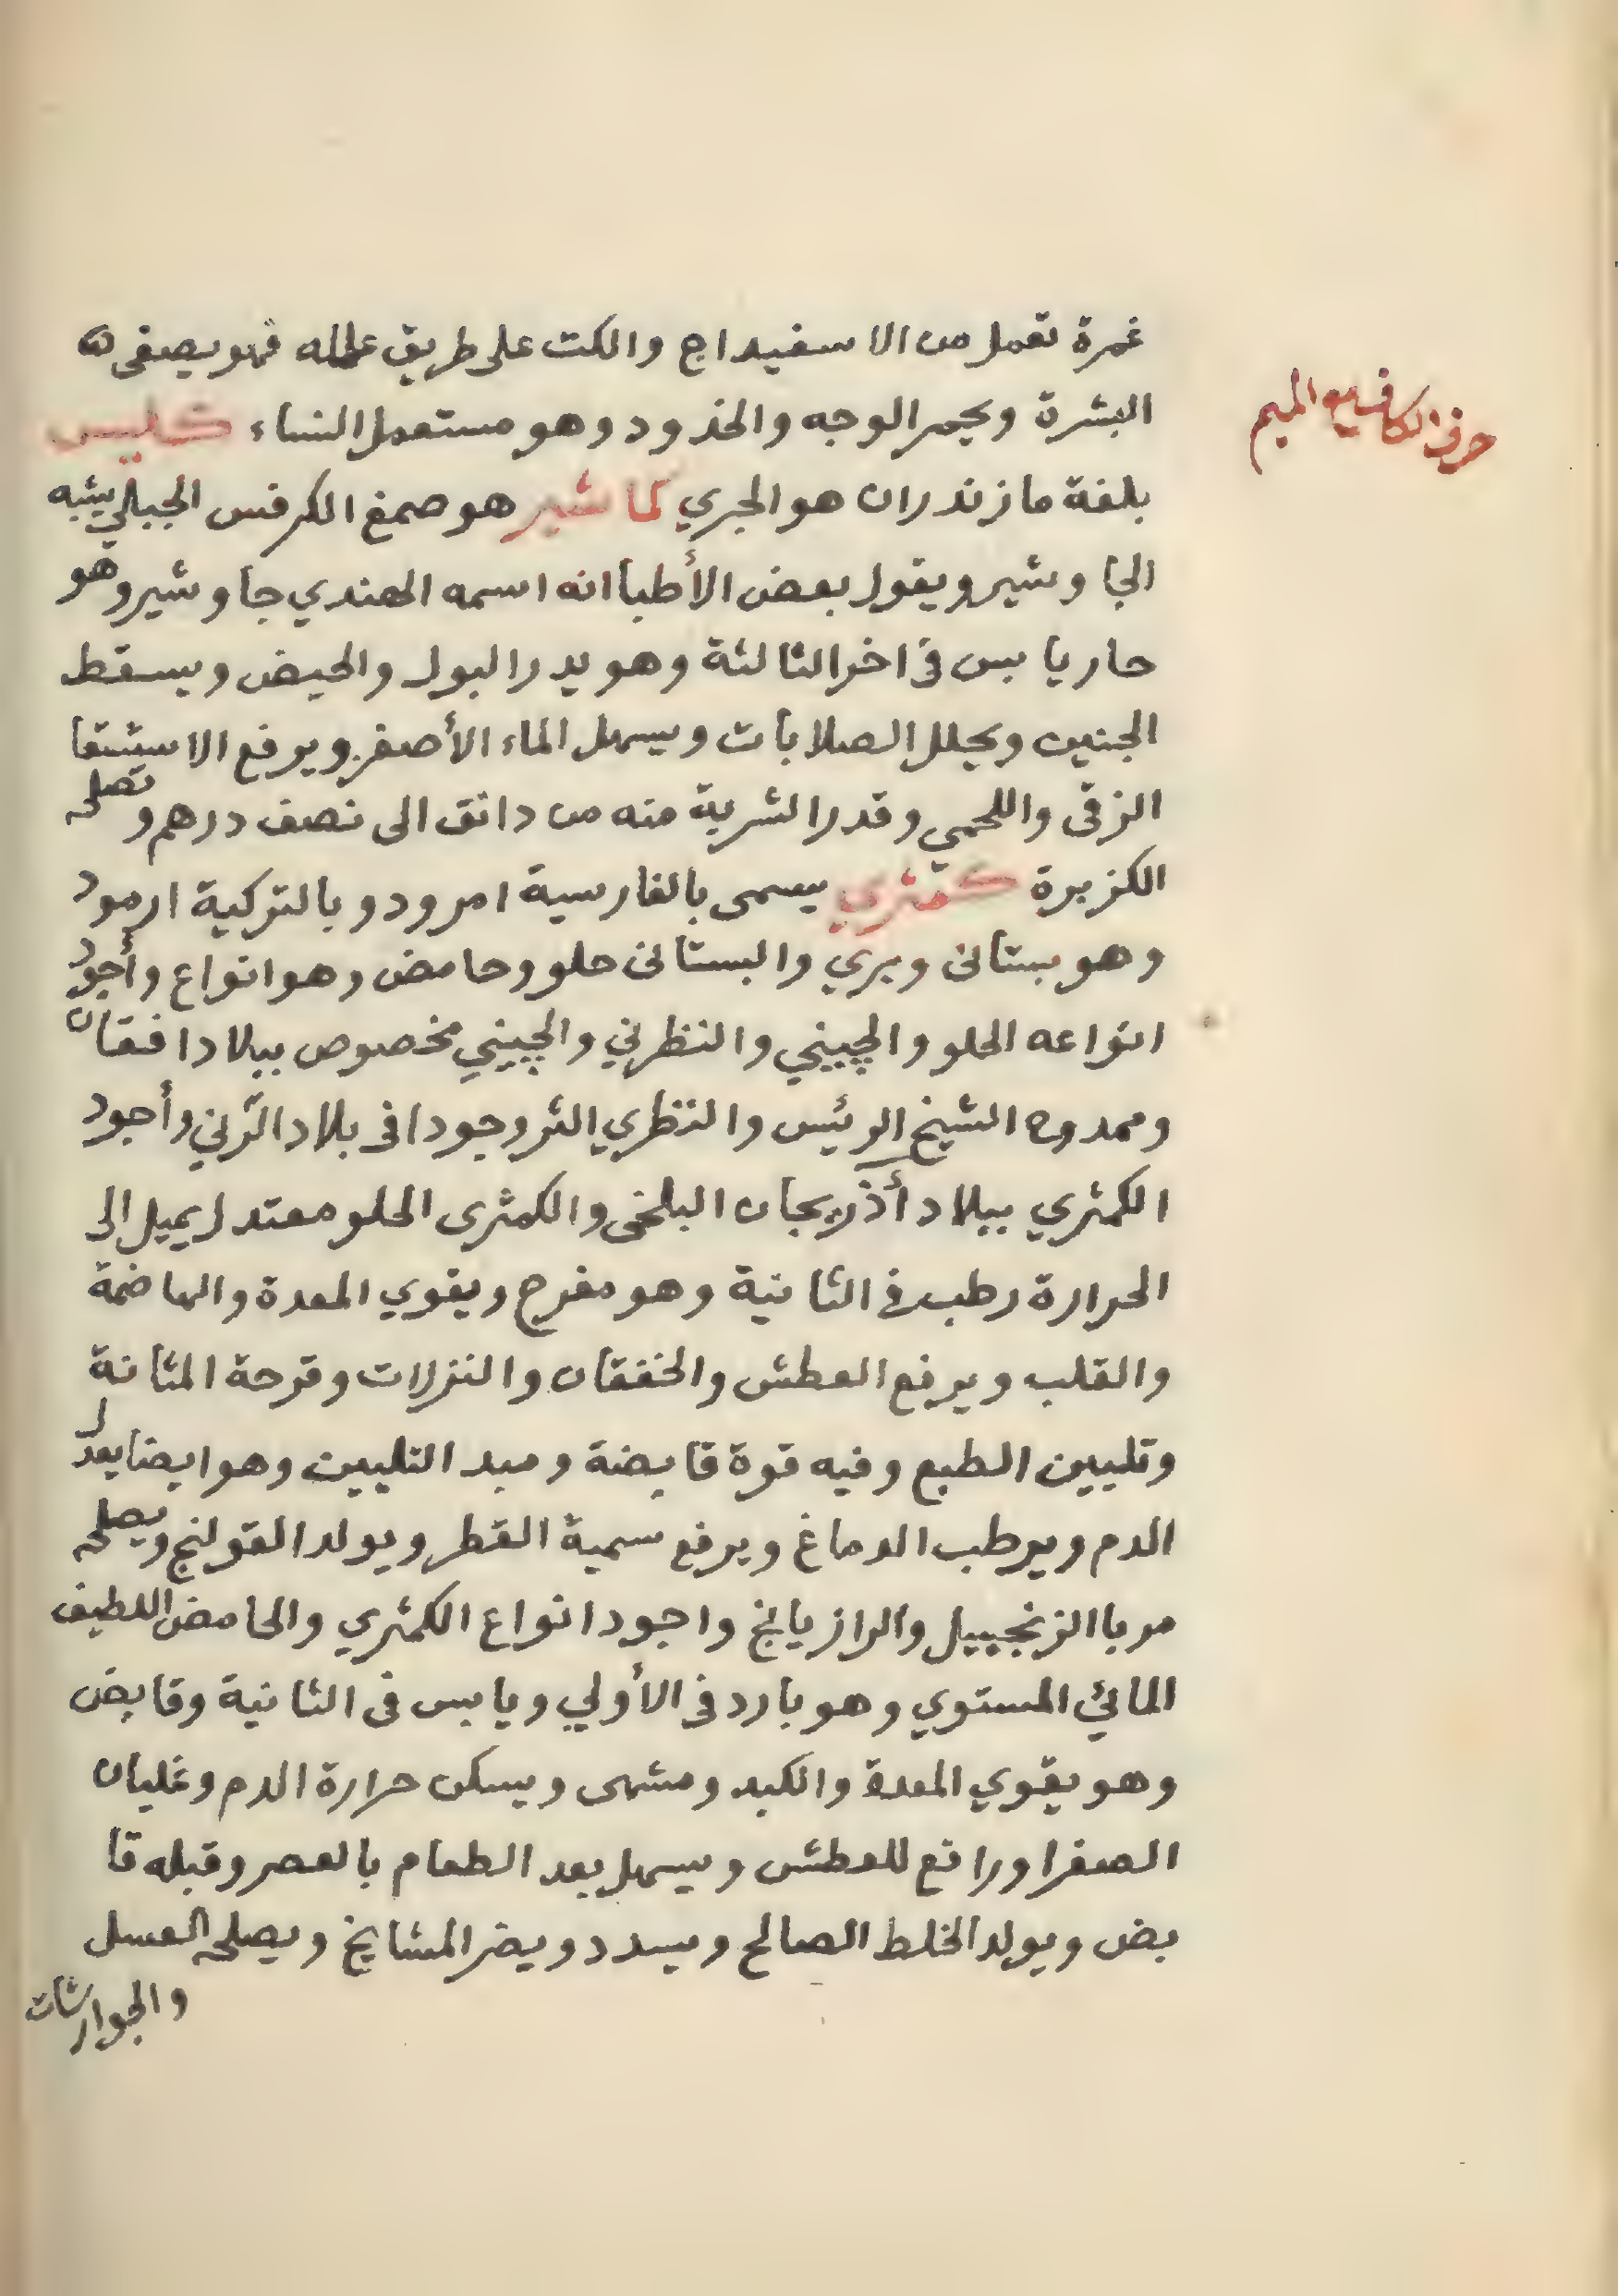 حرف الكاف مع الميم
غمرة تعمل من الاسفيداج والكت على طريق عمله فهو يصفى
البشرة ويحمر الوجه والخدود وهو مستعمل النساء كليس
بلغة مازندران هو الجري كماشير هو صمغ الكرفس الجبلي يشبه
الجاوشير ويقول بعض الأطبا انه اسمه الهندي جاوشير وهو
حار يابس فى اخر الثالثة وهو يدر البول والحيض ويسقط
الجنين ويحلل الصلابات ويسهل الماء الأصفر ويرفع الاستسقا
الزقى واللحمي وقدر الشربة منه من دانق الى نصف درهم وتصلحه
الكزبرة كمثري يسمى بالفارسية امرود وبالتركية ارمود
وهو بستانى وبري والبستانى حلو وحامض وهو انواع وأجود
انواعه الحلو والچيني والنظرني والچيني مخصوص ببلاد افقان
وممدوح الشيخ الرئيس والنظري اكثر وجودا فى بلاد الرني وأجود
الكمثري ببلاد أذربجان البلخى والكمثرى الحلو معتدل يميل الى
الحرارة رطب فى الثانية وهو مفرح ويقوي المعدة والهاضمة
والقلب ويرفع العطش والخفقان والنزلات وقرحة المثانة
وتليين الطبع وفيه قوة قابضة ومبد التليين وهو ايضا يعدل
الدم ويرطب الدماغ ويرفع سمية القطر ويولد القولنج ويصلحه
مربا الزنجبيل والرازيانج واجود انواع الكمثري والحامض اللطيف
المائي المستوي وهو بارد فى الأولي ويابس فى الثانية وقابض
وهو يقوي المعدة والكبد ومشهى ويسكن حرارة الدم وغليان
الصفرا ورافع للعطش ويسهل بعد الطعام بالعصر وقبله قا
بض ويولد الخلط الصالح ويسدد ويضر المشايخ ويصلحه العسل
والجوارشات